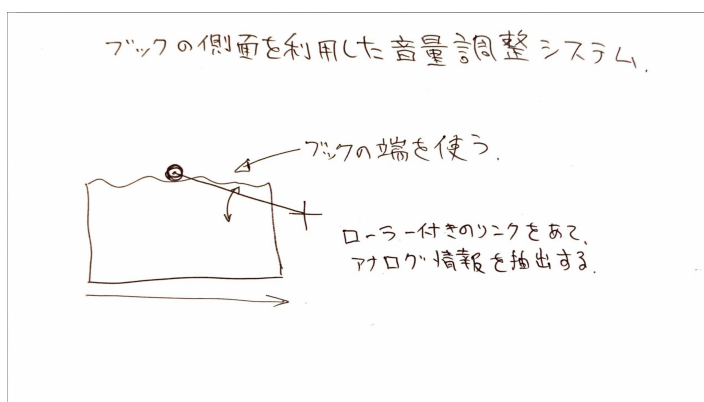 ブックの側面を利用した音量調整システム.
ブックの端を使う.
ローラー付きのリンクをあて、
アナログ情報を抽出する.